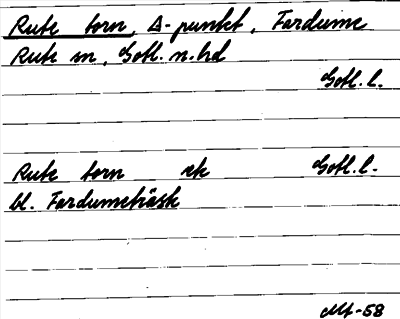 Rute torn, Δ-punkt, Fardume
Rute sn, Gotl. n. hd
Gotl. l.
Rute torn rk Gotl. l.
bl. Fardumeträsk
-58